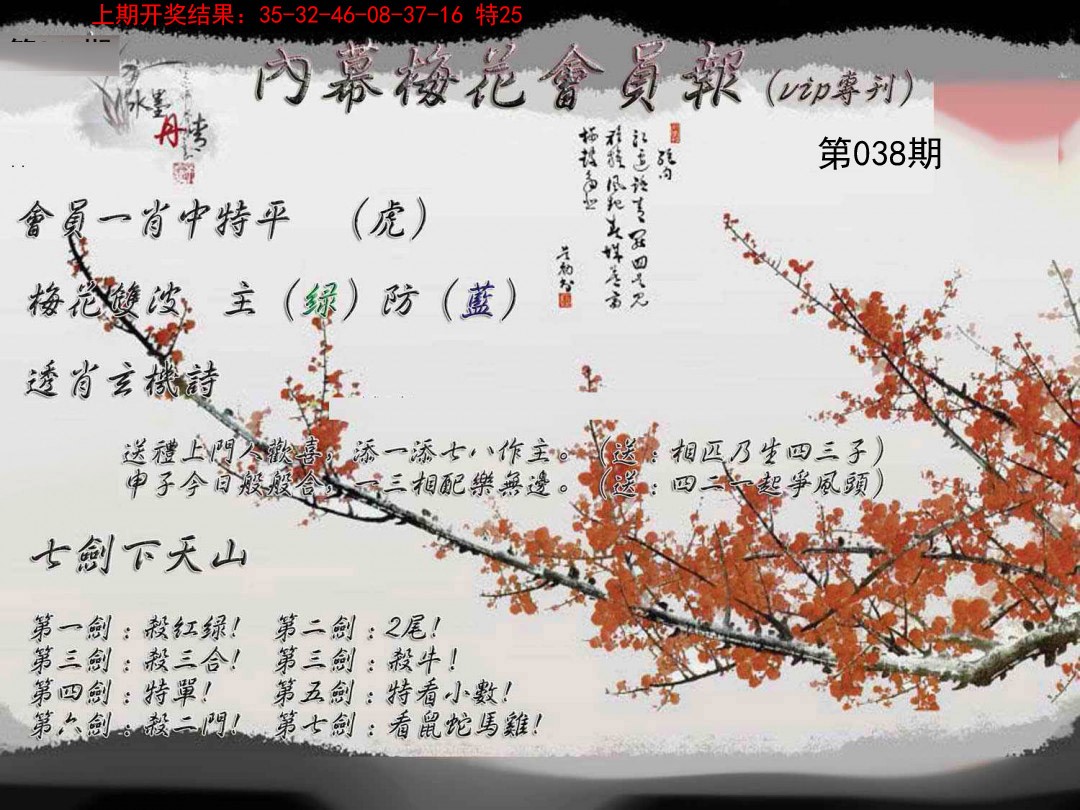 上期开奖结果：35-32-46-08-37-16 特25
內幕梅花會員報（vip專刊）
水墨
丹青
第038期
會員一肖中特平 （虎）
梅花雙波 主（绿）防（藍）
透肖玄機詩
送禮上門人歡喜，添一添七八作主。（送：相匹乃生四三子）
申子今日般般合，一三相配樂無邊。（送：四二一起爭風頭）
七劍下天山
第一劍：殺红绿！ 第二劍：2尾！
第三劍：殺三合！ 第三劍：殺牛！
第四劍：特單！ 第五劍：特看小數！
第六劍：殺二門！ 第七劍：看鼠蛇馬雞！